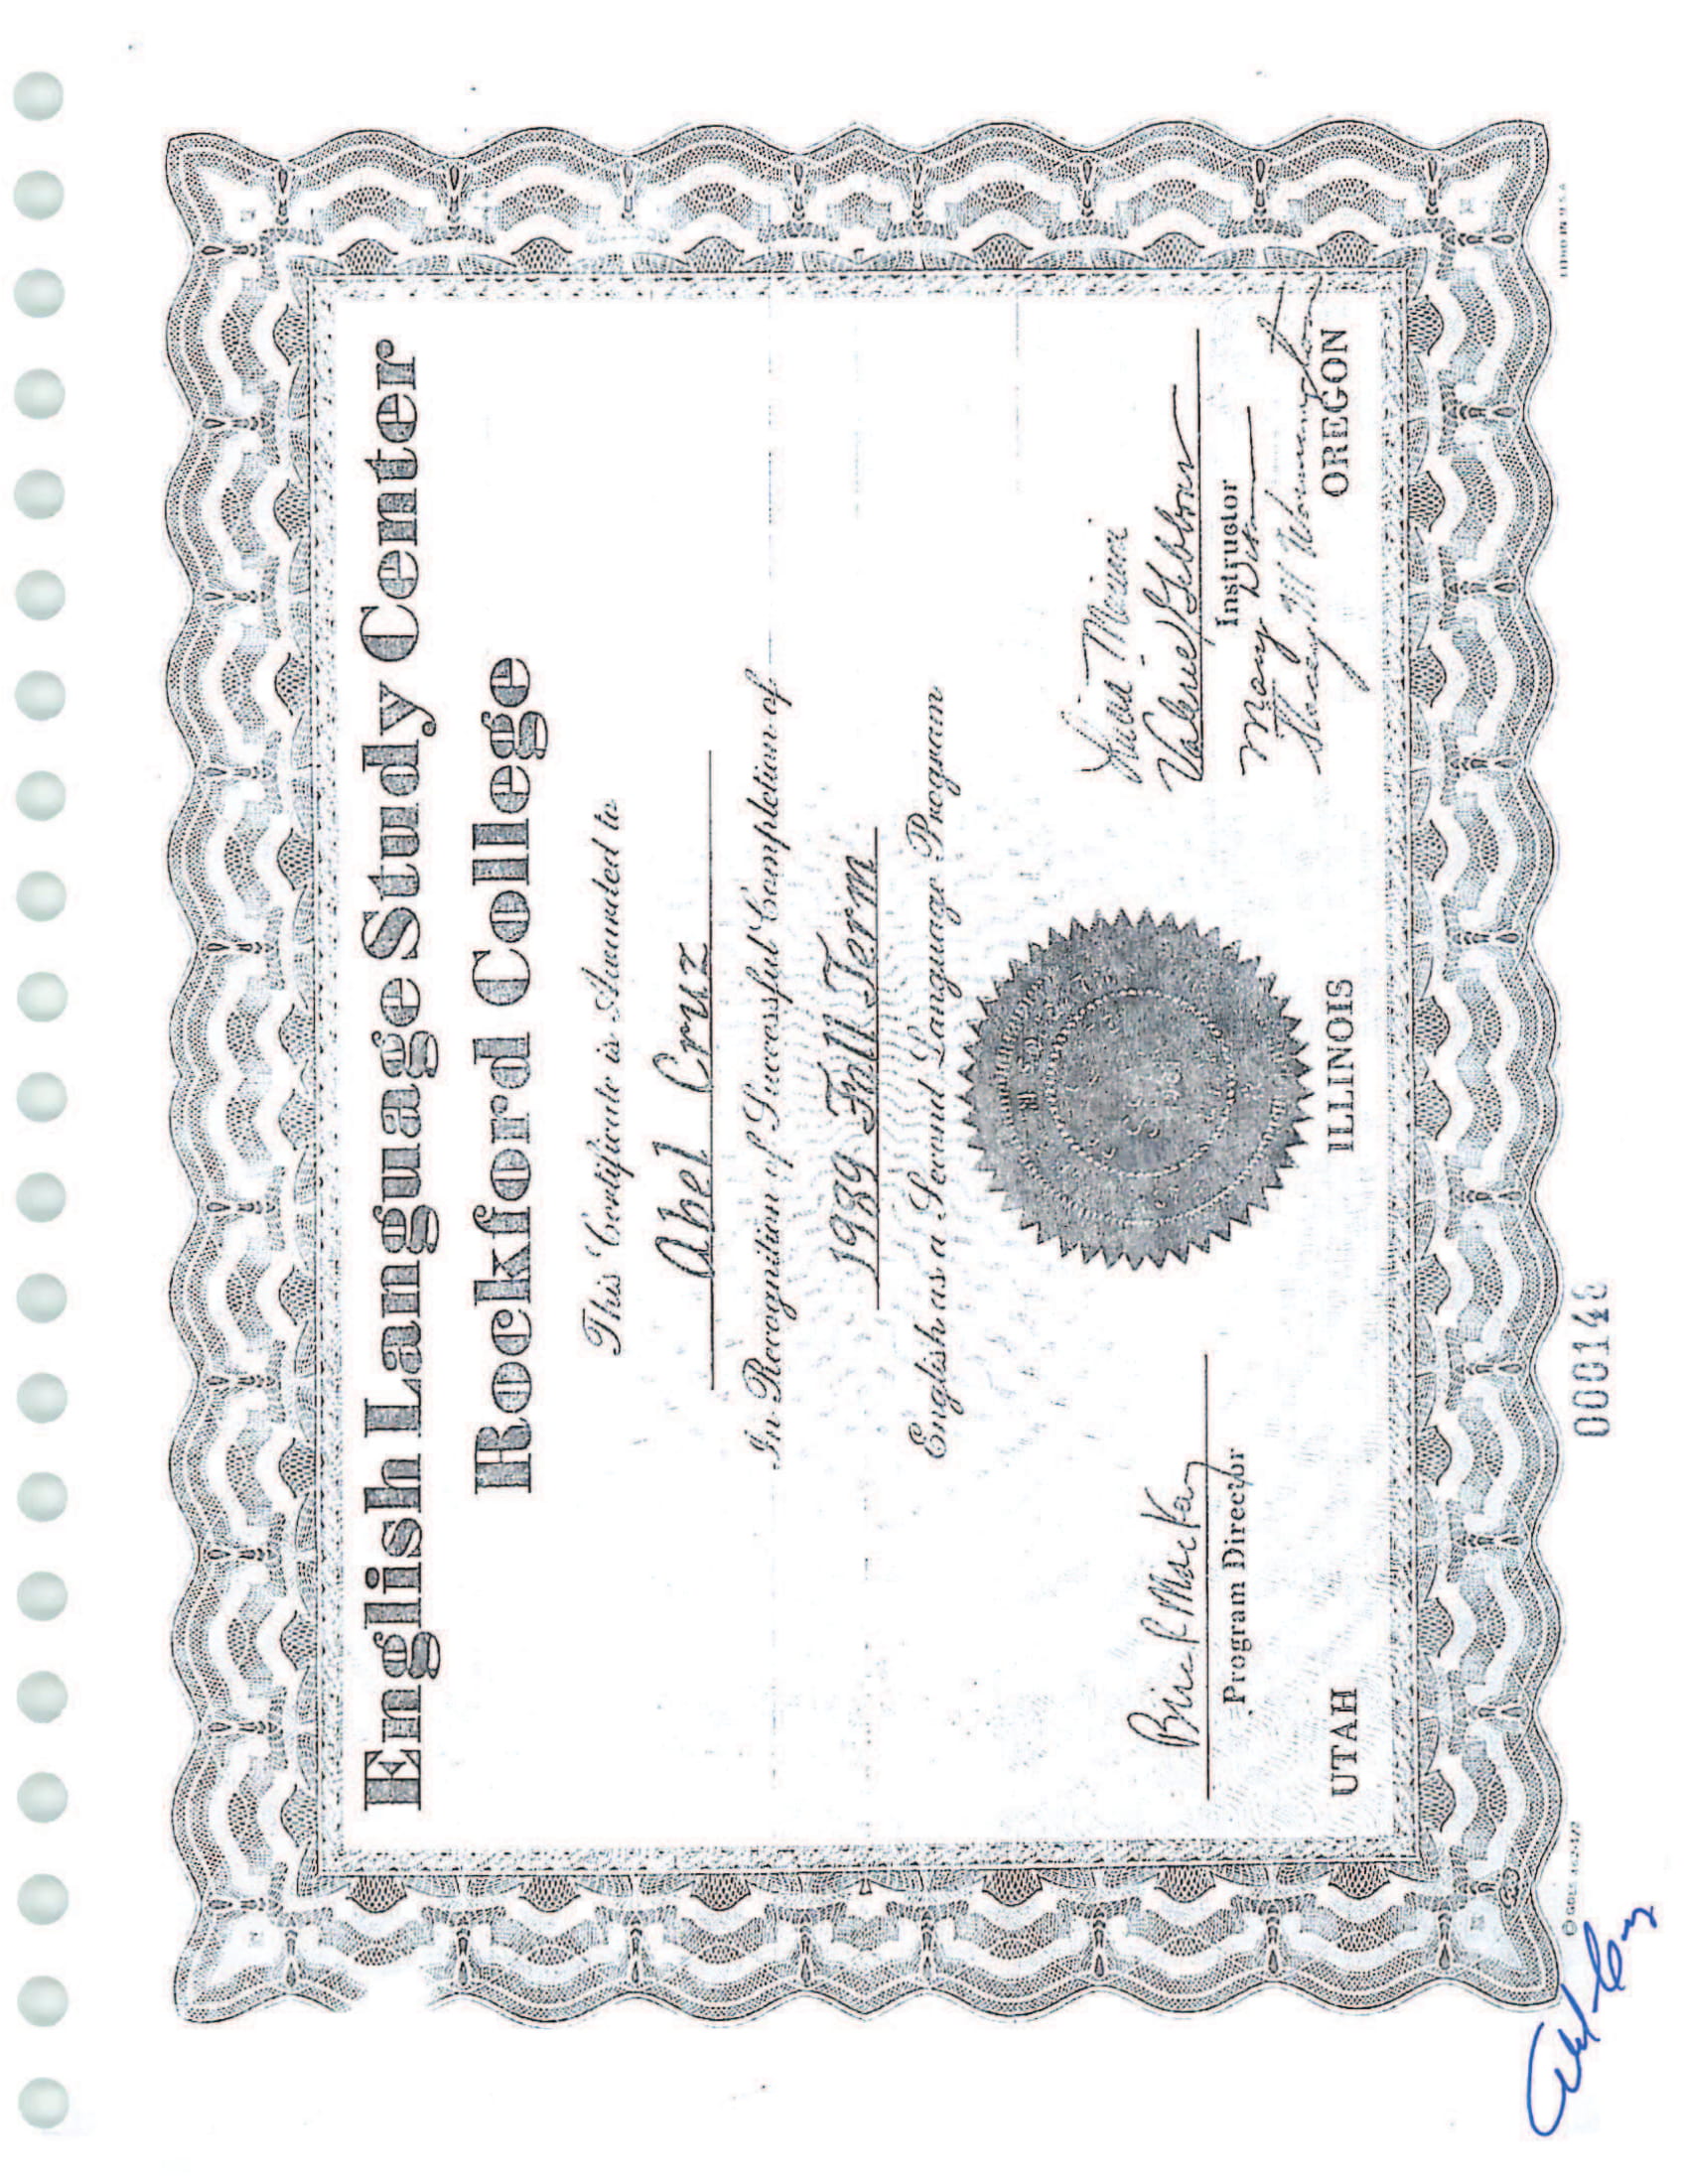 English Language Study Center
Rockford College
This Certificate is Awarded to
Abel Cruz
In Recognition of Successful Completion of
1989 Fall Term
English as a Second Language Program
Program Director
Instructor
UTAH
ILLINOIS
OREGON
© GOES 462-1/2